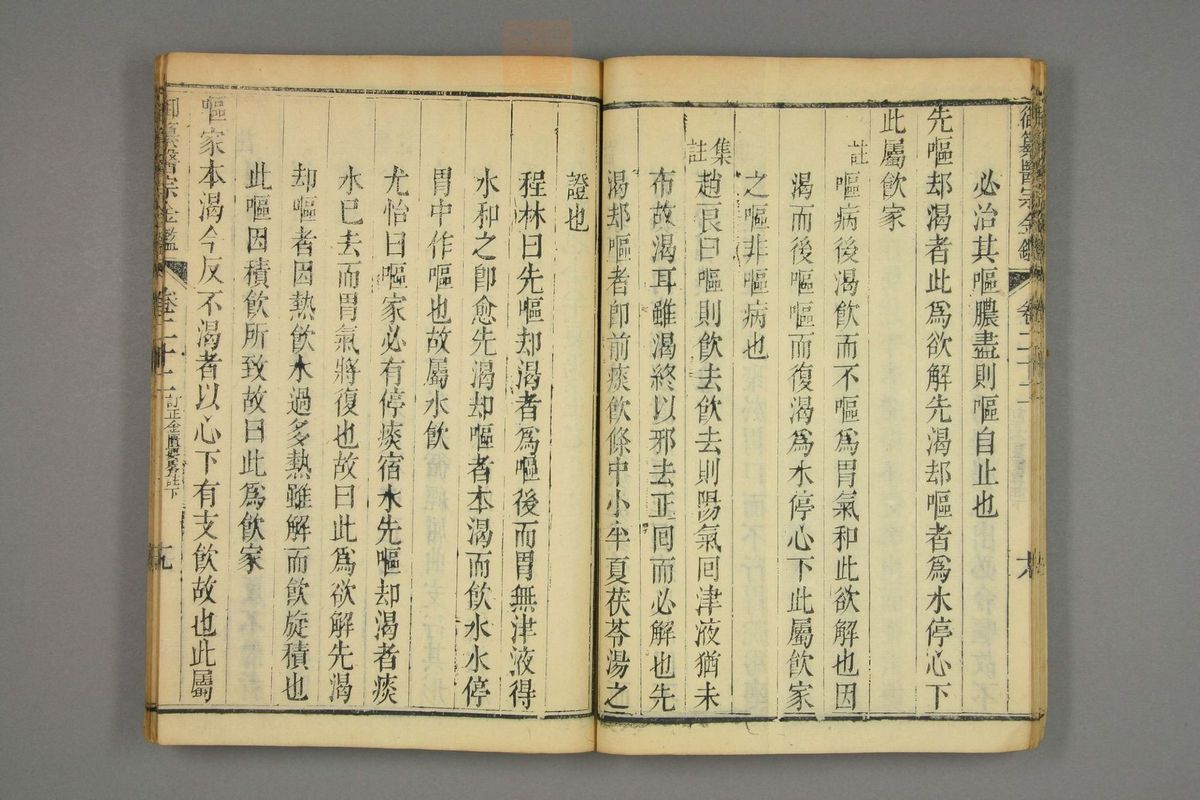 御纂醫宗金鑑 卷二十二
必治其嘔膿盡則嘔自止也
先嘔却渴者此爲欲解先渴却嘔者爲水停心下
此屬飲家
註嘔病後渴飲而不嘔爲胃氣和此欲解也因
渴而後嘔嘔而復渴爲水停心下此屬飲家
之嘔非嘔病也
集註趙良曰嘔則飲去飲去則陽氣囘津液猶未
布故渴耳雖渴終以邪去正囘而必解也先
渴却嘔者卽前痰飲條中小半夏茯苓湯之
證也
程林曰先嘔却渴者爲嘔後而胃無津液得
水和之卽愈先渴却嘔者本渴而飲水水停
胃中作嘔也故屬水飲
尤怡曰嘔家必有停痰宿水先嘔却渴者痰
水已去而胃氣將復也故曰此爲欲解先渴
却嘔者因熱飲水過多熱雖解而飲旋積也
此嘔因積飲所致故曰此爲飲家
嘔家本渴今反不渴者以心下有支飲故也此屬
御纂醫宗金鑑 卷二十二 訂正金匱要畧註下 十九